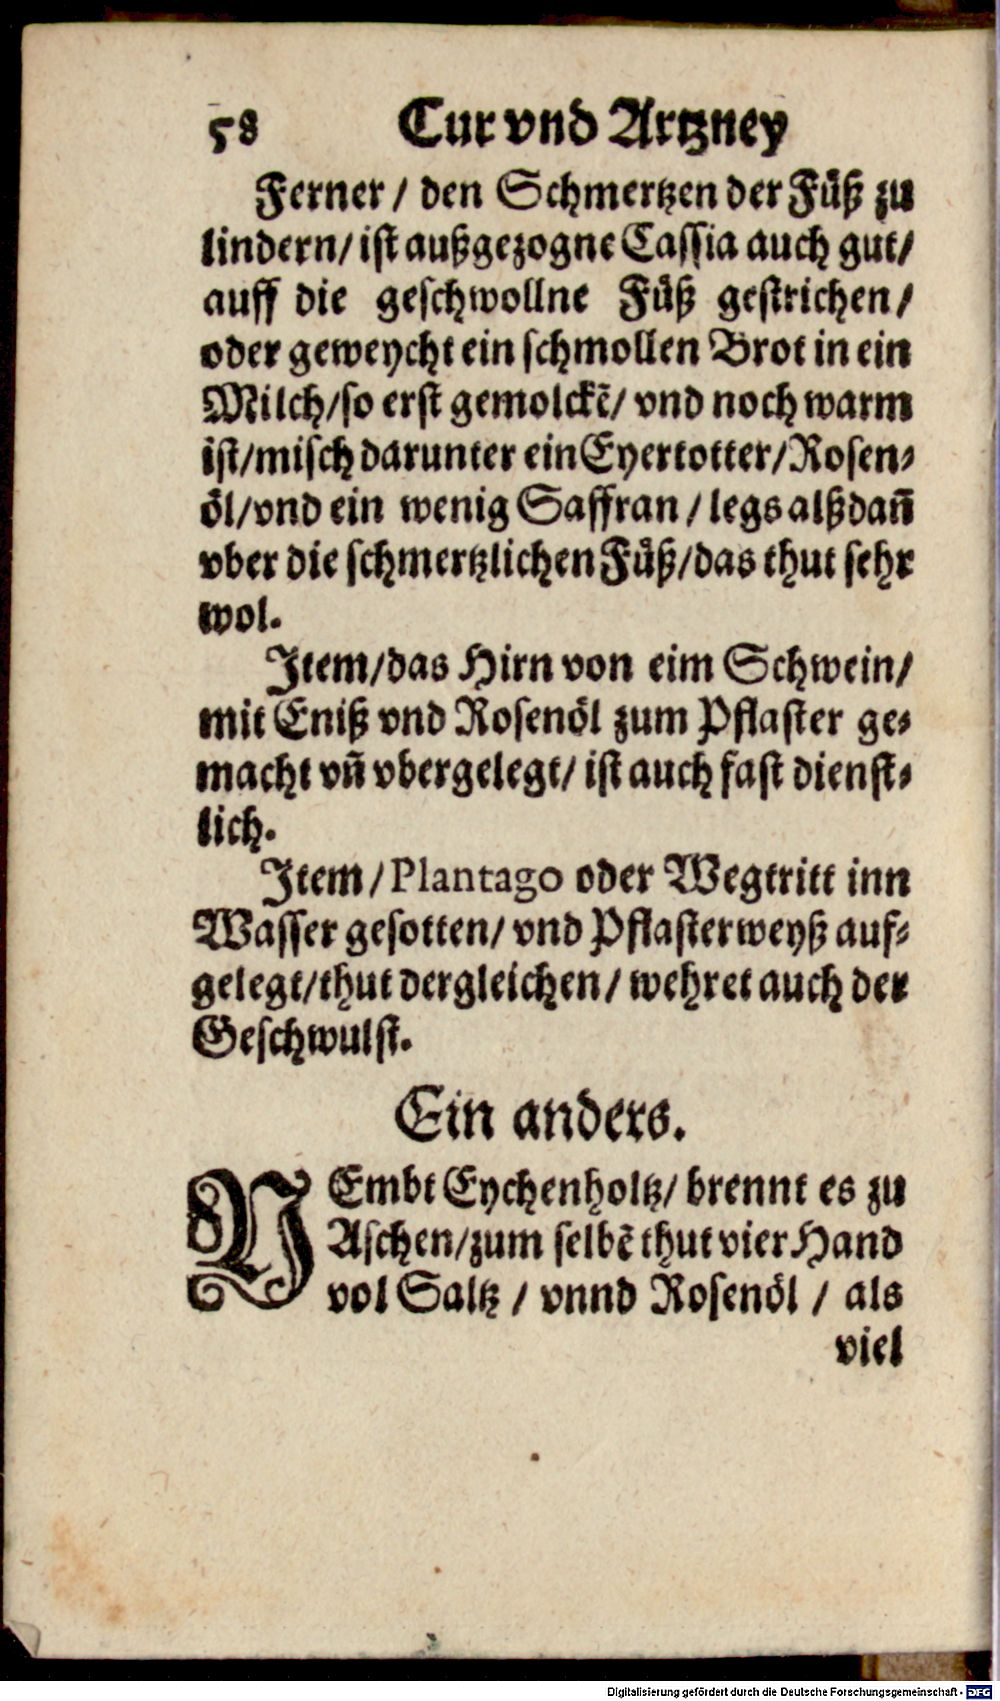 58 Cur vnd Artzney
Ferner / den Schmertzen der Füß zu
lindern/ ist außgezogne Cassia auch gut/
auff die geschwollne Füß gestrichen /
oder geweycht ein schmollen Brot in ein
Milch/so erst gemolckẽ/ vnd noch warm
ist/misch darunter ein Eyertotter/Rosen-
öl/vnd ein wenig Saffran / legs alßdañ
vber die schmertzlichen Füß/das thut sehr
wol.
Item/das Hirn von eim Schwein/
mit Eniß vnd Rosenöl zum Pflaster ge-
macht vñ vbergelegt/ ist auch fast dienst-
lich.
Item / Plantago oder Wegtritt inn
Wasser gesotten/ vnd Pflasterweyß auf-
gelegt/thut dergleichen / wehret auch der
Geschwulst.
Ein anders.
NEmbt Eychenholtz/ brennt es zu
Aschen/zum selbẽ thut vier Hand
vol Saltz / vnnd Rosenöl / als
viel
Digitalisierung gefördert durch die Deutsche Forschungsgemeinschaft - DFG